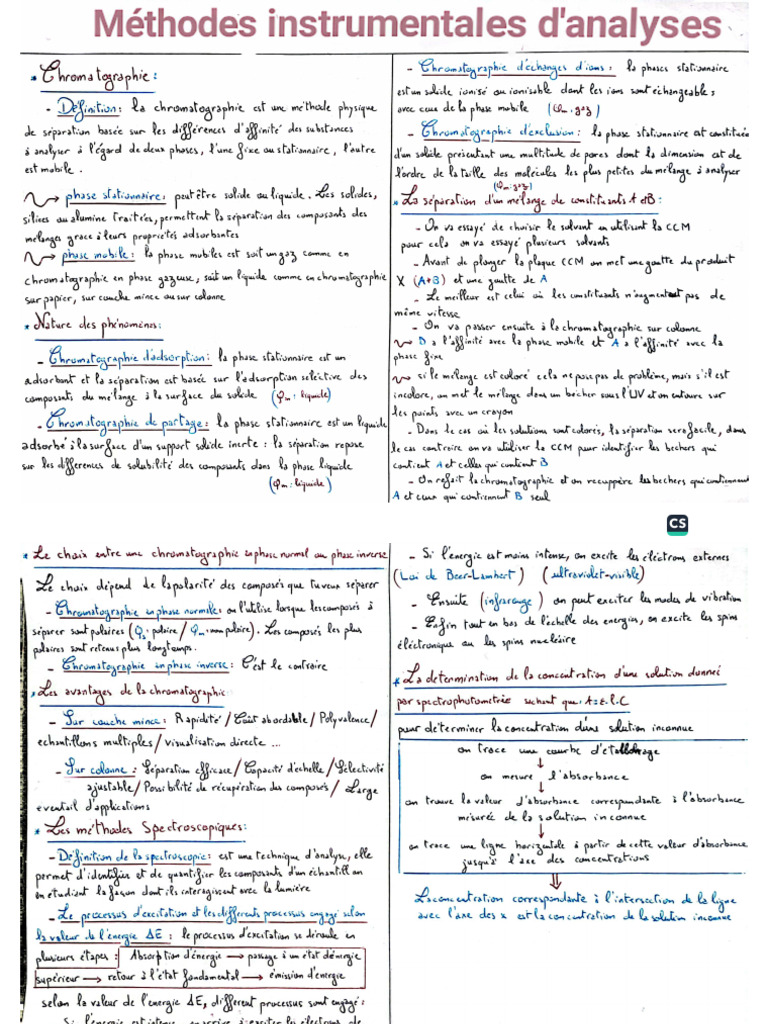 Méthodes instrumentales d'analyses
* Chromatographie :
- Définition : la chromatographie est une méthode physique
de séparation basée sur les différences d'affinité des substances
à analyser à l'égard de deux phases, l'une fixe ou stationnaire, l'autre
est mobile.
phase stationnaire : peut être solide ou liquide. Les solides,
silices ou alumine traitées, permettent la séparation des composants des
mélanges grace à leurs propriétés adsorbantes
phase mobile : la phase mobiles est soit un gaz comme en
chromatographie en phase gazeuse, soit un liquide comme en chromatographie
sur papier, sur couche mince ou sur colonne
* Nature des phénomènes :
- Chromatographie d'adsorption : la phase stationnaire est un
adsorbant et la séparation est basée sur l'adsorption sélective des
composants du mélange à la surface du solide (φm : liquide)
- Chromatographie de partage : la phase stationnaire est un liquide
adsorbé à la surface d'un support solide inerte : la séparation repose
sur les différences de solubilité des composants dans la phase liquide
(φm : liquide)
- Chromatographie d'échanges d'ions : la phases stationnaire
est un solide ionisé ou ionisable dont les ions sont échangeables,
avec ceux de la phase mobile (φm : gaz)
- Chromatographie d'exclusion : la phase stationnaire est constituée
d'un solide présentant une multitude de pores dont la dimension est de
l'ordre de la taille des molécules les plus petites du mélange à analyser
(φm : gaz)
* La séparation d'un mélange de constituants A et B :
- On va essayé de choisir le solvant en utilisant la CCM
pour cela on va essayé plusieurs solvants
- Avant de plonger la plaque CCM on met une goutte du produit
X (A+B) et une goutte de A
- Le meilleur est celui où les constituants n'augmentent pas de
même vitesse
- On va passer ensuite à la chromatographie sur colonne
D a l'affinité avec la phase mobile et A a l'affinité avec la
phase fixe
si le mélange est coloré cela ne pose pas de problème, mais s'il est
incolore, on met le mélange dans un bécher sous l'UV et on entoure sur
les points avec un crayon
- Dans le cas où les solutions sont colorés, la séparation sera facile, dans
le cas contraire on va utiliser la CCM pour identifier les bechers qui
contient A et celles qui contient B
- On refait la chromatographie et on recuppère les bechers qui contiennent
A et ceux qui contiennent B seul
CS
* Le choix entre une chromatographie en phase normal ou phase inverse
Le choix dépend de la polarité des composés que tu veux séparer
- Chromatographie en phase normale : on l'utilise lorsque les composés à
séparer sont polaires (φs = polaire / φm = non polaire). Les composés les plus
polaires sont retenus plus longtemps.
- Chromatographie en phase inverse : C'est le contraire
* Les avantages de la chromatographie
- Sur couche mince : Rapidité / Coût abordable / Polyvalence /
echantillons multiples / visualisation directe ...
- Sur colonne : Séparation efficace / Capacité d'échelle / Sélectivité
ajustable / Possibilité de récupération des composés / Large
eventail d'applications
* Les méthodes Spectroscopiques :
- Définition de la spectroscopie : est une technique d'analyse, elle
permet d'identifier et de quantifier les composants d'un échantillon
en étudiant la façon dont ils interagissent avec la lumière
- Le processus d'excitation et les différents processus engagé selon
la valeur de l'énergie ΔE : le processus d'excitation se déroule en
plusieurs étapes : Absorption d'énergie → passage à un état d'énergie
supérieur → retour à l'état fondamental → émission d'énergie
selon la valeur de l'énergie ΔE, différent processus sont engagé :
Si l'énergie est intense, on arrive à exciter les électrons de
- Si l'énergie est moins intense, on excite les électrons externes
(Loi de Beer-Lambert) (ultraviolet-visible)
- Ensuite (infrarouge) on peut exciter les modes de vibration
- Enfin tout en bas de l'échelle des énergies, on excite les spins
électronique ou les spins nucléaire
* La détermination de la concentration d'une solution donné
par spectrophotométrie sachant que : A = ε.l.C
pour déterminer la concentration d'une solution inconnue
on trace une courbe d'étalonnage
↓
on mesure l'absorbance
↓
on trouve la valeur d'absorbance correspondante à l'absorbance
mesurée de la solution inconnue
↓
on trace une ligne horizontale à partir de cette valeur d'absorbance
jusqu'à l'axe des concentrations
⇓
La concentration correspondante à l'intersection de la ligne
avec l'axe des x est la concentration de la solution inconnue